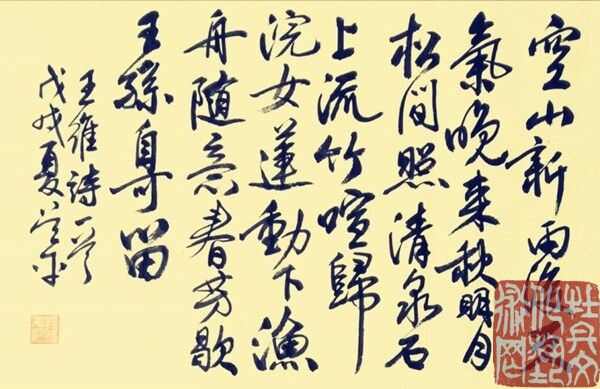 空山新雨後天
氣晚来秋明月
松間照清泉石
上流竹喧歸
浣女蓮動下漁
舟随意春芳歇
王孫自可留
王維詩一首
戊戌夏